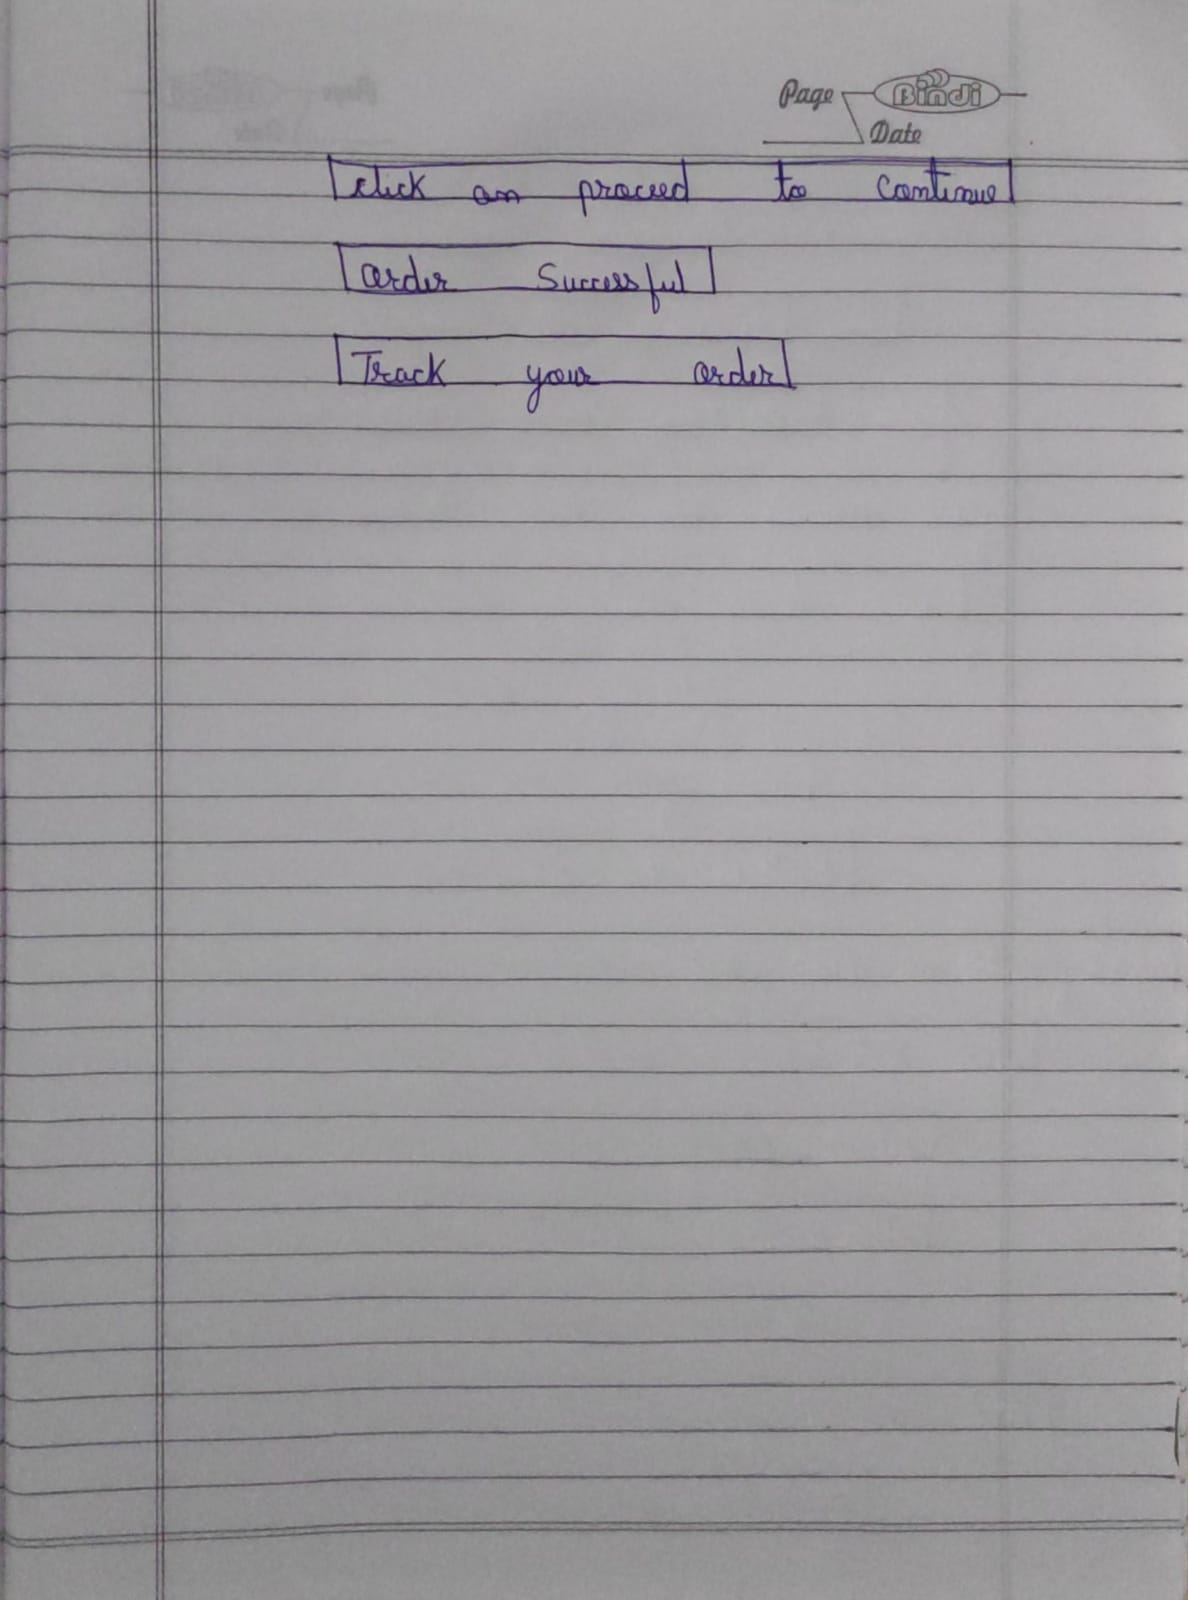 Page Bindi
Date
click on proceed to continue
order Successful
Track your order